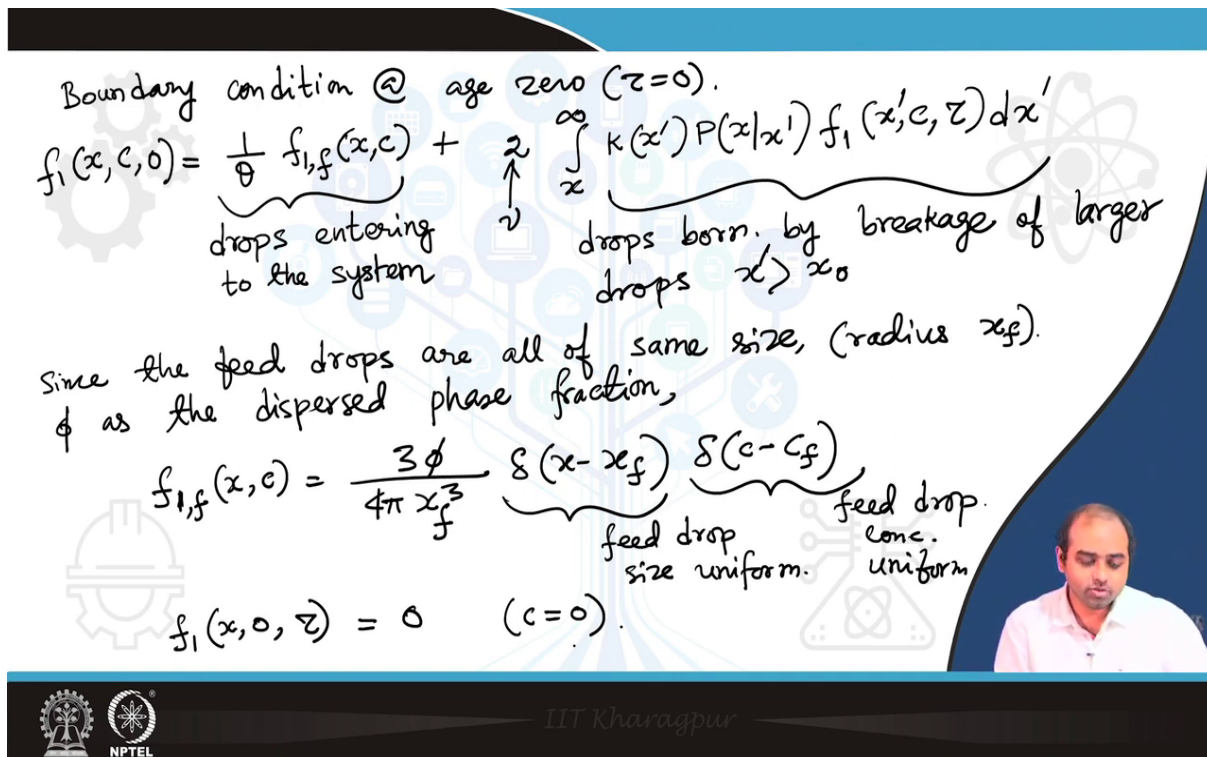 Boundary condition @ age zero (τ=0).
f₁(x, c, 0) = 1/θ f₁,f(x,c) + 2 ∫ₓ^∞ K(x') P(x|x') f₁(x',c,τ) dx'
drops entering to the system
ν
drops born. by breakage of larger drops x' > x₀
Since the feed drops are all of same size, (radius x_f).
ϕ as the dispersed phase fraction,
f₁,f(x,c) = 3ϕ / 4π x_f³ δ(x-x_f) δ(c-c_f)
feed drop size uniform.
feed drop. conc. uniform
f₁(x,0,τ) = 0 (c=0).
IIT Kharagpur
NPTEL